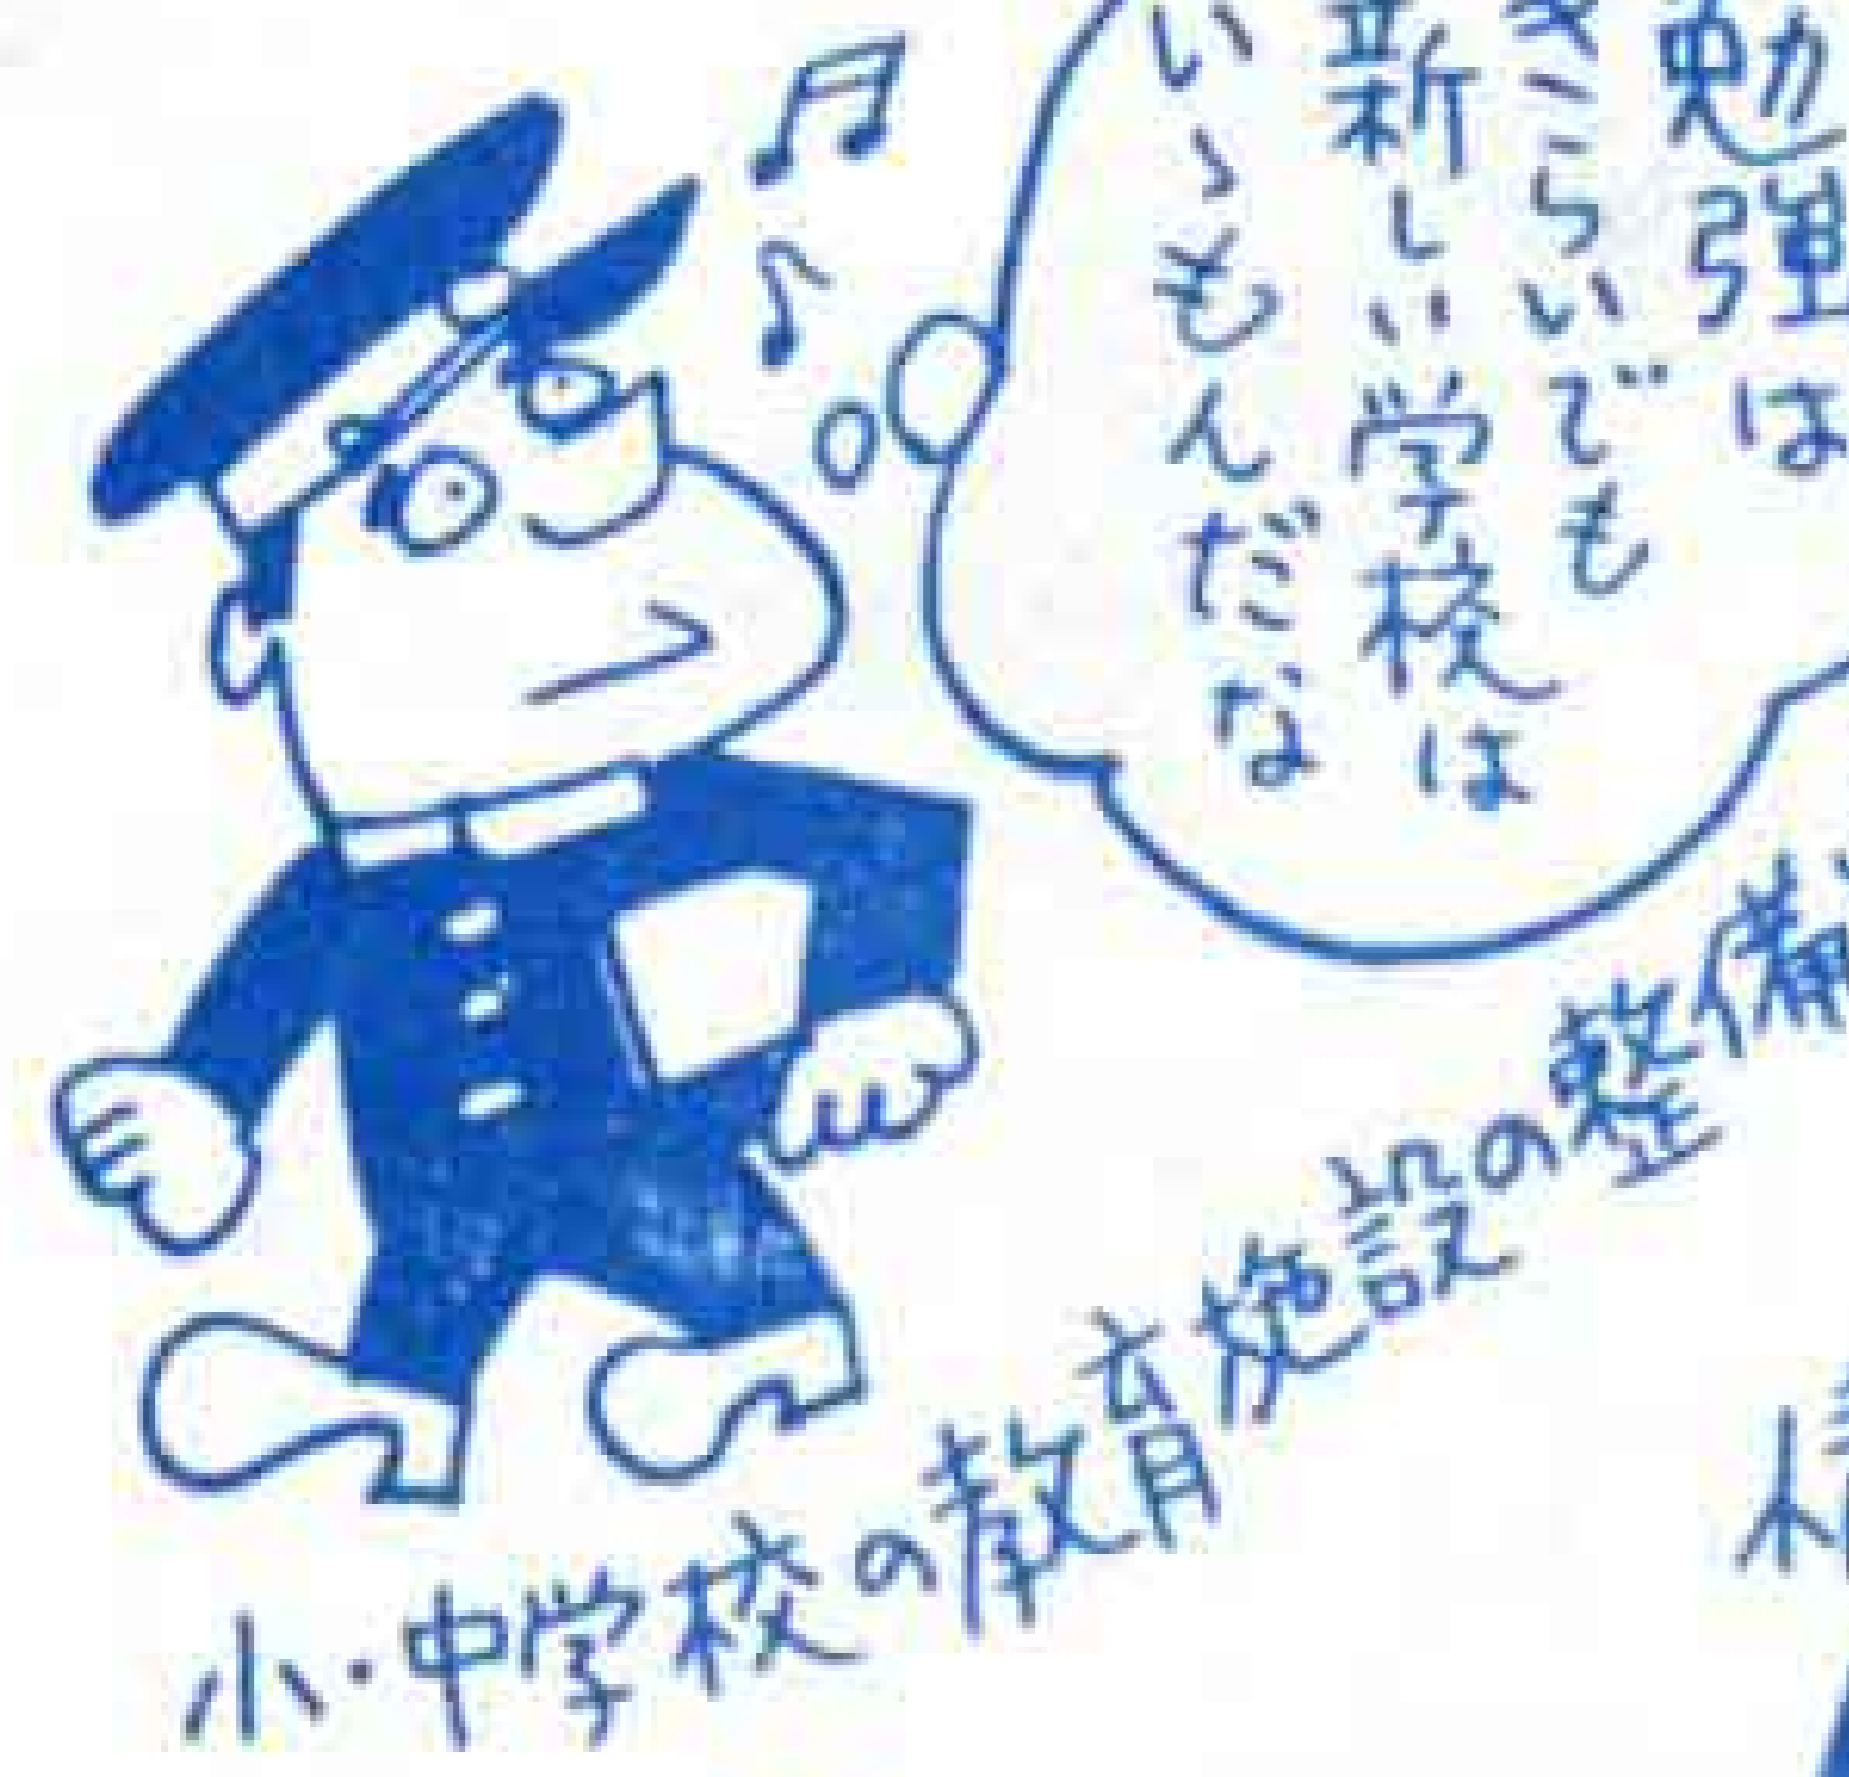 勉強は
きらいでも
新しい学校は
いゝもんだな
小・中学校の教育施設の整備